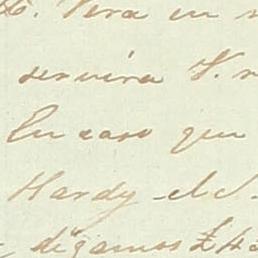 Vera en
servira V.
En caso que
Hardy el S.
digamos £